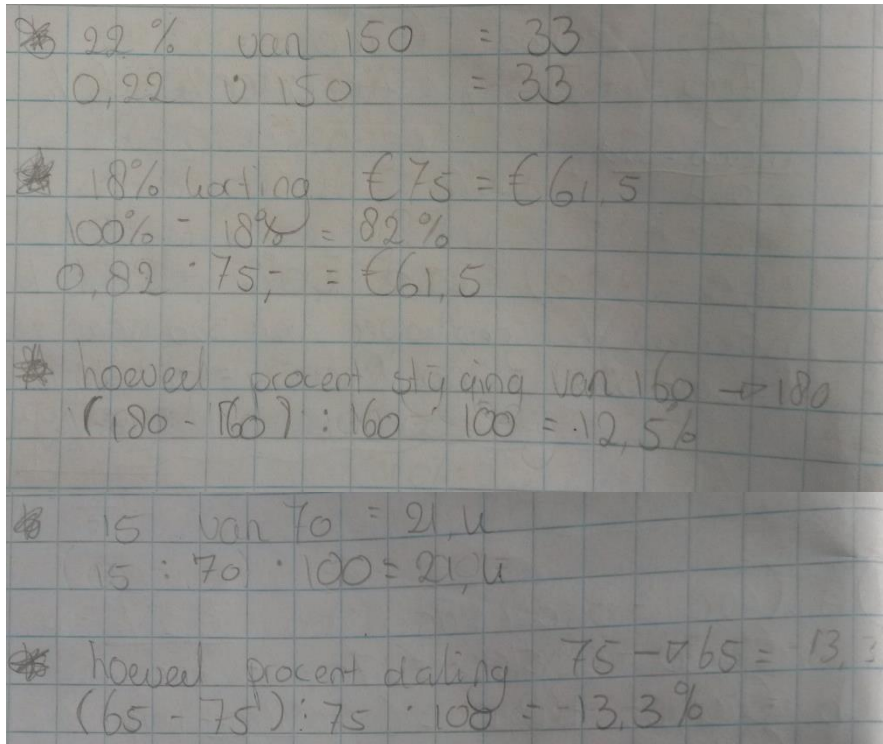 22 % van 150 = 33
0,22 · 150 = 33
18% korting €75 = €61,5
100% - 18% = 82%
0,82 · 75,- = €61,5
hoeveel procent stijging van 160 → 180
(180 - 160) : 160 · 100 = 12,5%
15 van 70 = 21,4
15 : 70 · 100 = 21,4
hoeveel procent daling 75 → 65 = -13,
(65 - 75) : 75 · 100 = -13,3%